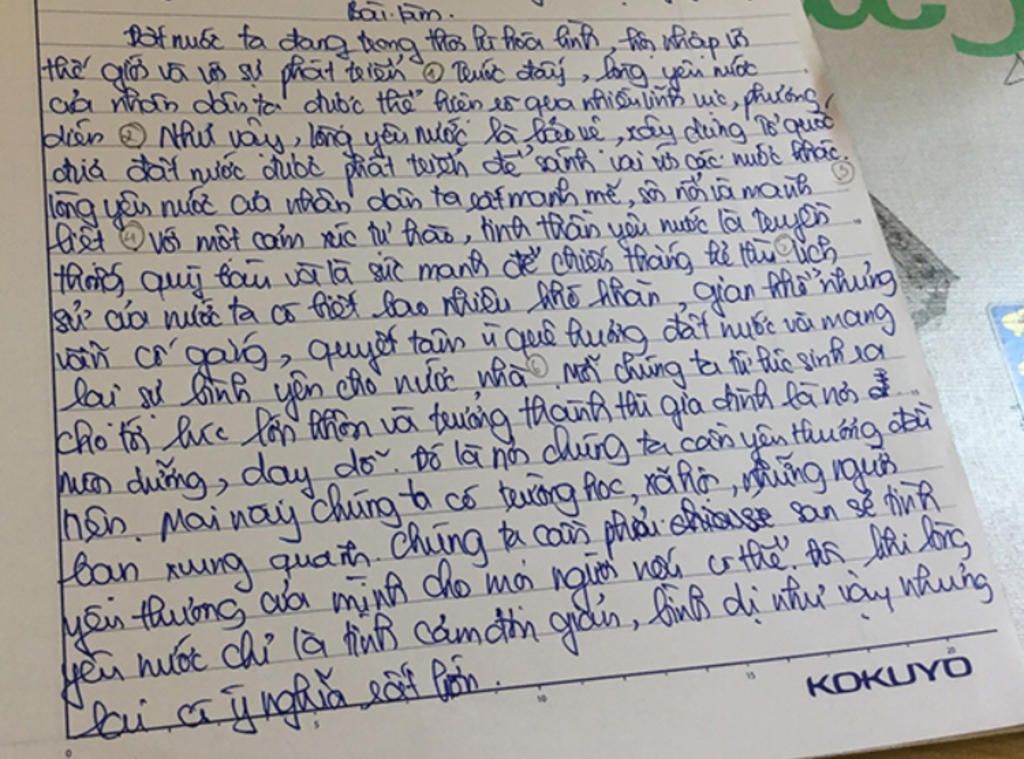 Bài làm.
Đất nước ta đang trong thời kì hòa bình, hội nhập với
thế giới và với sự phát triển ① trước đây, lòng yêu nước
của nhân dân ta được thể hiện rõ qua nhiều lĩnh vực, phương
diện ② Như vậy, lòng yêu nước là bảo vệ, xây dựng Tổ quốc
đưa đất nước được phát triển để sánh vai với các nước khác. ③
lòng yêu nước của nhân dân ta rất mạnh mẽ, sôi nổi và mãnh
liệt ④ với một cảm xúc tự hào, tinh thần yêu nước là truyền
thống quý báu và là sức mạnh để chiến thắng kẻ thù lịch
sử của nước ta có biết bao nhiêu khó khăn, gian khổ nhưng
vẫn cố gắng, quyết tâm vì quê hương đất nước và mang
lại sự bình yên cho nước nhà ⑥ Mỗi chúng ta từ lúc sinh ra
cho tới lúc lớn khôn và trưởng thành thì gia đình là nơi
nuôi dưỡng, dạy dỗ. Đó là nơi chúng ta cần yêu thương đầu
tiên. Mai này chúng ta có trường học, xã hội, những người
bạn xung quanh. Chúng ta cần phải san sẻ tình
yêu thương của mình cho mọi người nếu có thể. Đôi khi lòng
yêu nước chỉ là tình cảm đơn giản, bình dị như vậy nhưng
lại có ý nghĩa rất lớn.
KOKUYO
0 5 10 15 20